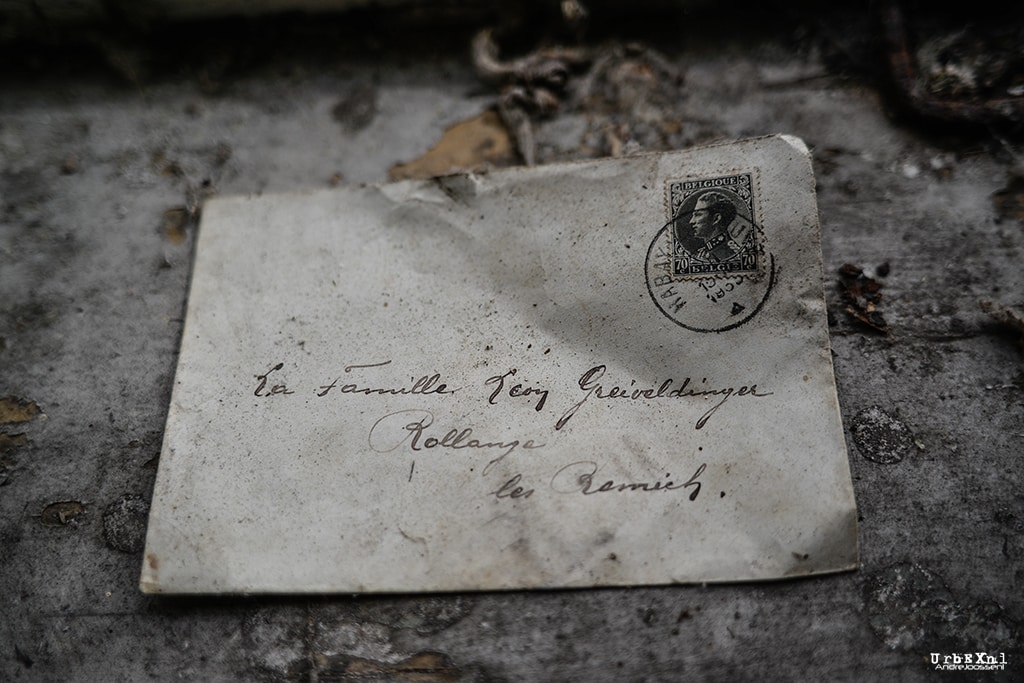 BELGIQUE
70 70
BELGIË
HABAY
La Famille Léon Greiveldinger
Rollange
les Remich.
UrbEXnl
AndreJoosseni